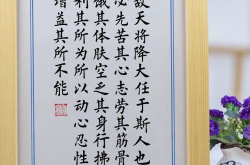 故天将降大任于斯人也
必先苦其心志劳其筋骨
饿其体肤空乏其身行拂
乱其所为所以动心忍性
增益其所不能